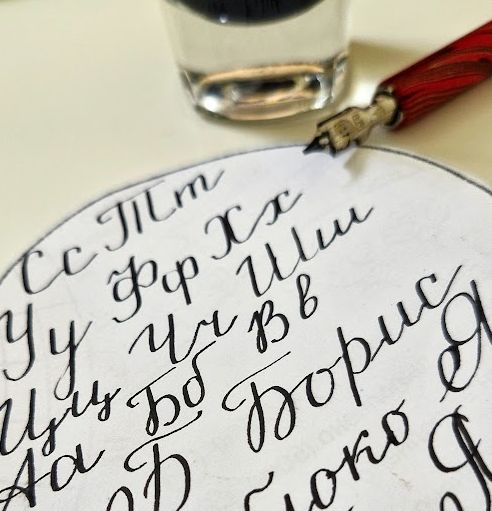 Сс Тт
Уу Фф Хх
Цц Чч Шш
Аа Бб Вв
Б Борис
Я
Я